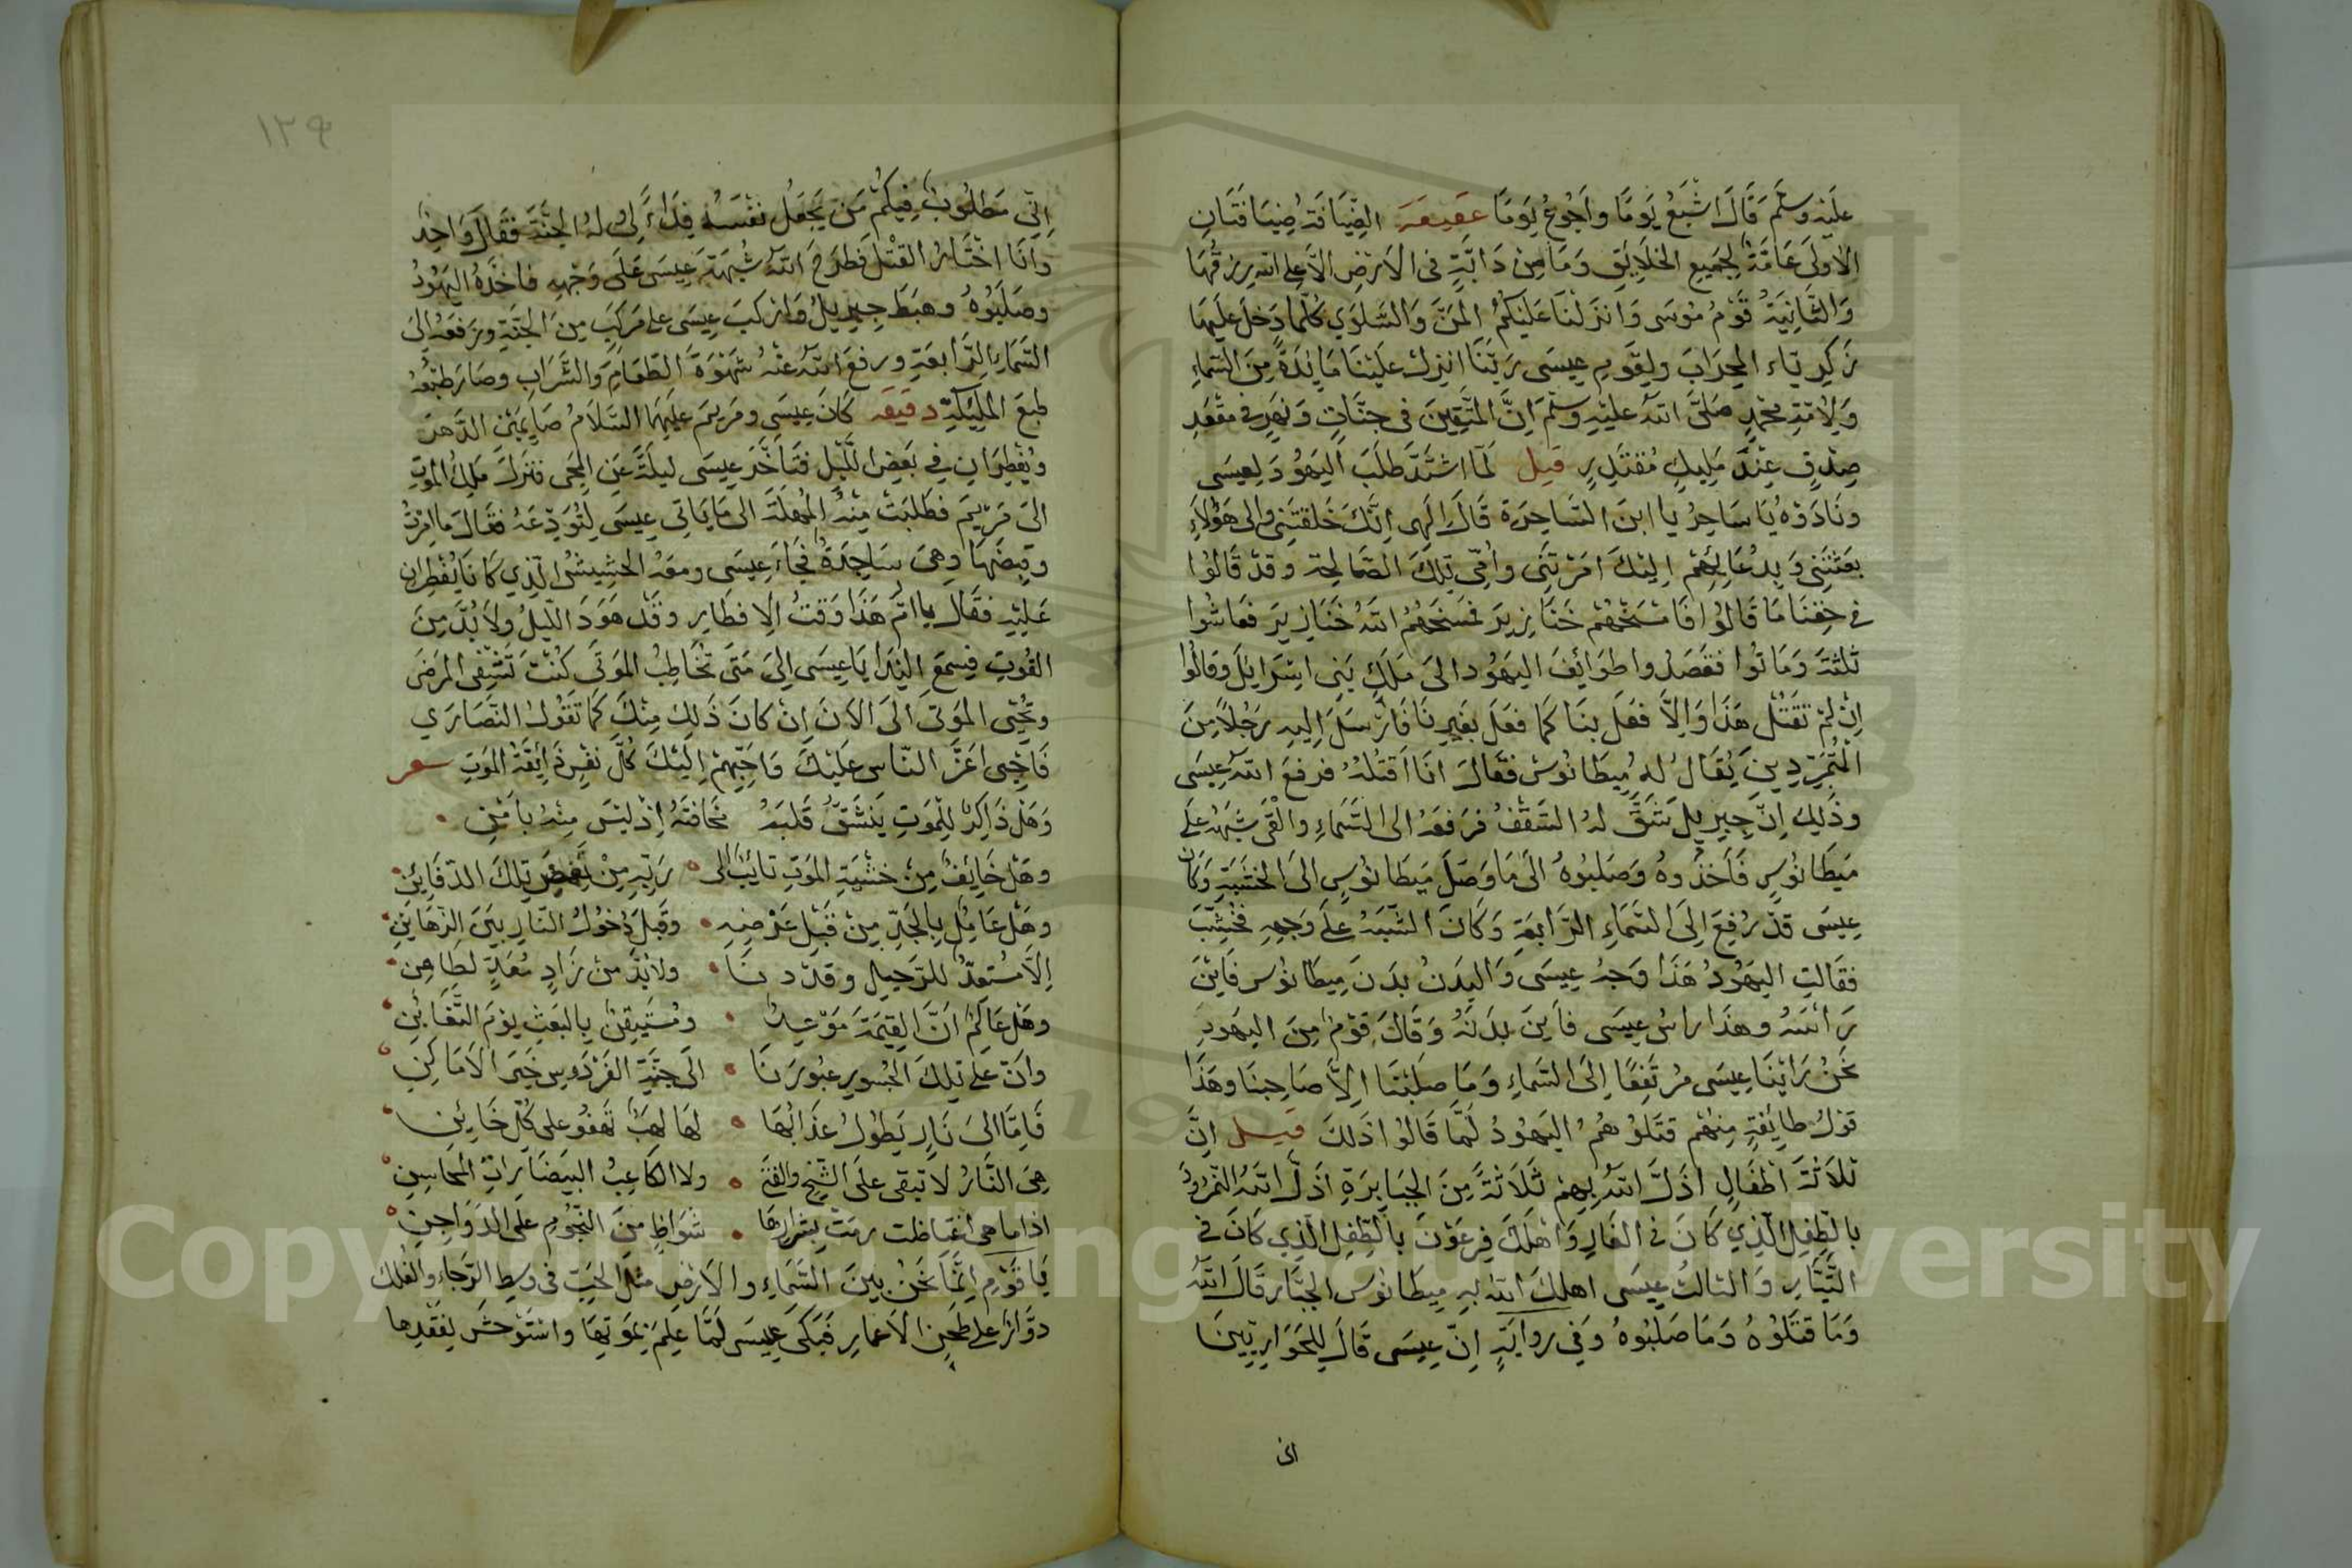 عليه وسلم قال اشبع يوما واجوع يوما عقيقة الضيافة ضيافتان
الاولى عامة لجميع الخلايق وما من دابة في الارض الا على الله رزقها
والثانية قوم موسى وانزلنا عليكم المن والسلوي كلما دخل عليها
زكرياء المحراب ولقوم عيسى ربنا انزل علينا مايدة من السماء
ولامة محمد صلى الله عليه وسلم ان المتقين في جنات ونهر في مقعد
صدق عند مليك مقتدر قيل لما اشتد طلب اليهود لعيسى
ونادوه يا ساحر يا ابن الساحرة قال الهى انك خلقتني والى هؤلاء
بعثتني وبدعائهم اليك امرتني وامي تلك الصالحة وقد قالوا
في حقنا ما قالوا فامسخهم خنازير فمسخهم الله خنازير فعاشوا
ثلثة وماتوا فقصدوا طوائف اليهود الى ملك بني اسرايل وقالوا
ان لم تقتل هذا والا فعل بنا كما فعل بغيرنا فارسل اليه رجلا من
المتمردين يقال له ميطانوس فقال انا اقتله فرفع الله عيسى
وذلك ان جبريل شق له السقف فرفعه الى السماء والقى شبهه على
ميطانوس فاخذوه وصلبوه الى ما وصل ميطانوس الى الخشبة وكان
عيسى قد رفع الى السماء الرابعة وكان الشبه على وجهه فحسب
فقالت اليهود هذا وجه عيسى والبدن بدن ميطانوس فاين
راسه وهذا راس عيسى فاين بدنه وقال قوم من اليهود
نحن راينا عيسى مرتفعا الى السماء وما صلبنا الا صاحبنا وهذا
قول طايفة منهم قتلوهم اليهود لما قالوا ذلك قيل ان
ثلاثة اطفال اذل الله بهم ثلاثة من الجبابرة اذل الله النمرود
بالطفل الذي كان في الغار واهلك فرعون بالطفل الذي كان في
التيار والثالث عيسى اهلك الله به ميطانوس الجبار قال الله
وما قتلوه وما صلبوه وفي رواية ان عيسى قال للحواريين
انى
١٢٩
انى مطلوب فيكم من يجعل نفسه فداء لى وله الجنة فقال واحد
وانا اختار القتل فطرح الله شبهة عيسى على وجهه فاخذه اليهود
وصلبوه وهبط جبريل واركب عيسى على مركب من الجنة ورفعه الى
السماء الرابعة ورفع الله عنه شهوة الطعام والشراب وصار طبعه
طبع المليكة دقيقه كان عيسى ومريم عليهما السلام صايمين الدهر
ويفطران في بعض الليل فتاخر عيسى ليلة عن المجى فنزل ملك الموت
الى مريم فطلبت منه المهلة الى ما ياتى عيسى لتودعه فقال ما امرت
وقبضها وهى ساجدة فجاء عيسى ومعه الحشيش الذي كانا يفطران
عليه فقال يا ام هذا وقت الافطار وقد هود الليل ولا بد من
القوت فسمع الندا يا عيسى الى متى تخاطب الموتى كنت تشفى المرضى
وتحيى الموتى الى الان ان كان ذلك منك كما تقول النصاري
فاحيى اعز الناس عليك واحبهم اليك كل نفس ذايقة الموت سعر
وهل ذاكر للموت ينشق قلبه مخافته اذ ليس منه بامن
وهل خايف من خشية الموت تايب الى ربه من تلك الدفاين
وهل عامل بالجد من قبل عرضه وقبل دخول النار بين الرهاين
الا مستعد للرحيل وقد دنا ولا بد من زاد معد لظاعن
وهل عالم ان القيمة موعد ومستيقن بالبعث يوم التغابن
وان على تلك الجسور عبورنا الى جنة الفردوس خير الاماكن
فاما الى نار يطول عذابها لها لهب تهفو على كل خاين
هى النار لا تبقى على الشيخ والفتى ولا الكاعب البيضا رات المحاسن
اذا ما هى اغتاظت رمت بشرارها شواظ من النجوم على الدواجن
يا قوم انما نحن بين السماء والارض مثل الحب في وسط الرحاء والفلك
دوار على طحن الاعمار فبكى عيسى لما علم بموتها واستوحش لفقدها
Copyright © King Saud University